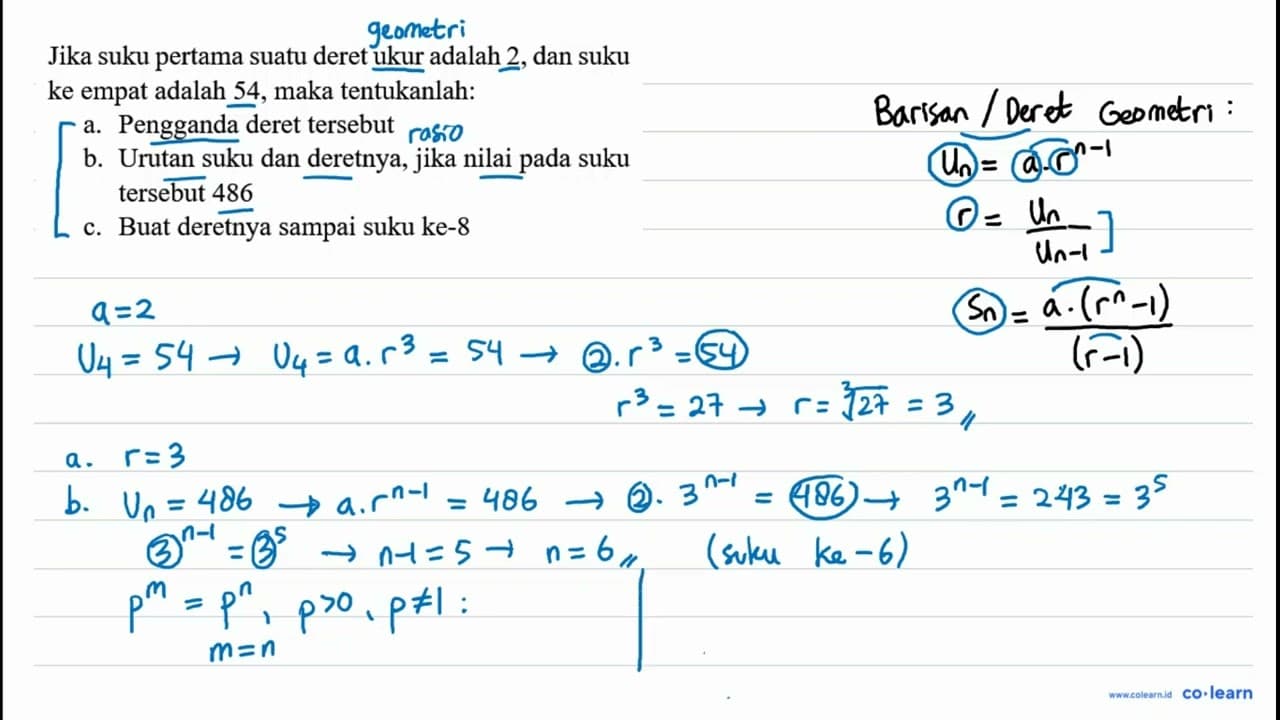 geometri
Jika suku pertama suatu deret ukur adalah 2, dan suku
ke empat adalah 54, maka tentukanlah:
a. Pengganda deret tersebut rasio
b. Urutan suku dan deretnya, jika nilai pada suku
tersebut 486
c. Buat deretnya sampai suku ke-8
Barisan / Deret Geometri :
Un = a.r^n-1
r = Un / Un-1
Sn = a.(r^n -1) / (r-1)
a=2
U4 = 54 → U4 = a.r³ = 54 → 2.r³ = 54
r³ = 27 → r = ³√27 = 3 //
a. r=3
b. Un = 486 → a.r^n-1 = 486 → 2.3^n-1 = 486 → 3^n-1 = 243 = 3⁵
3^n-1 = 3⁵ → n-1 = 5 → n = 6 // (suku ke-6)
p^m = p^n, p>0, p≠1 :
m=n
www.colearn.id co·learn